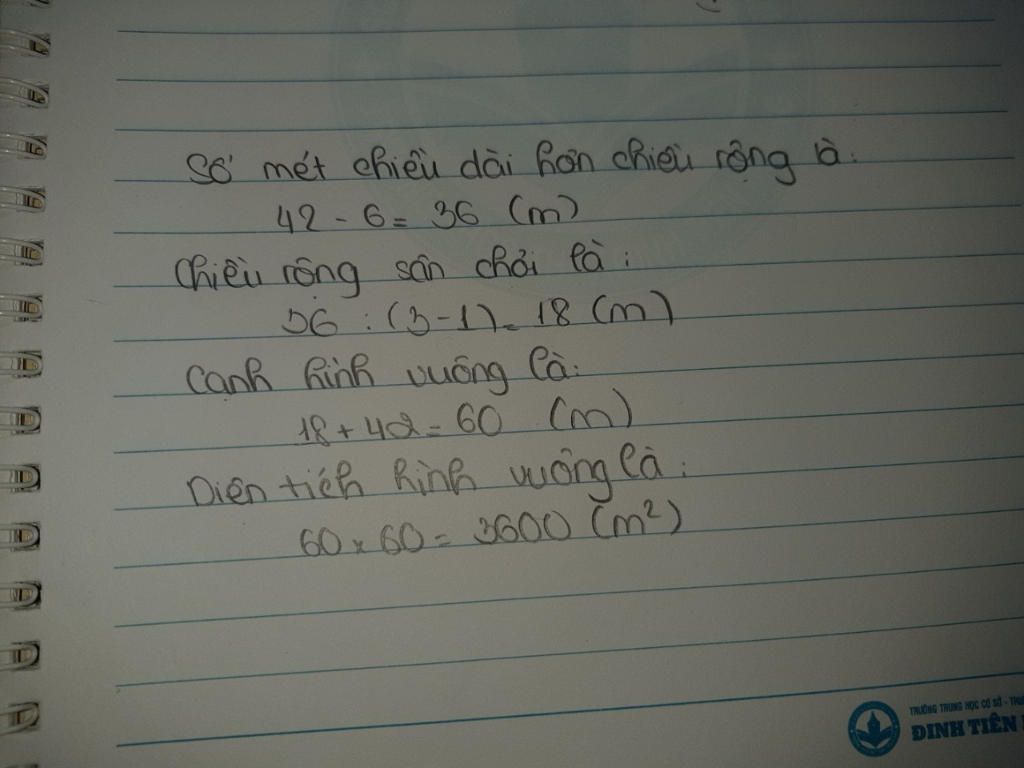 Số mét chiều dài hơn chiều rộng là:
42 - 6 = 36 (m)
Chiều rộng sân chơi là:
36 : (3 - 1) = 18 (m)
Cạnh hình vuông là:
18 + 42 = 60 (m)
Diện tích hình vuông là:
60 x 60 = 3600 (m²)
TRƯỜNG TRUNG HỌC CƠ SỞ -
ĐINH TIÊN